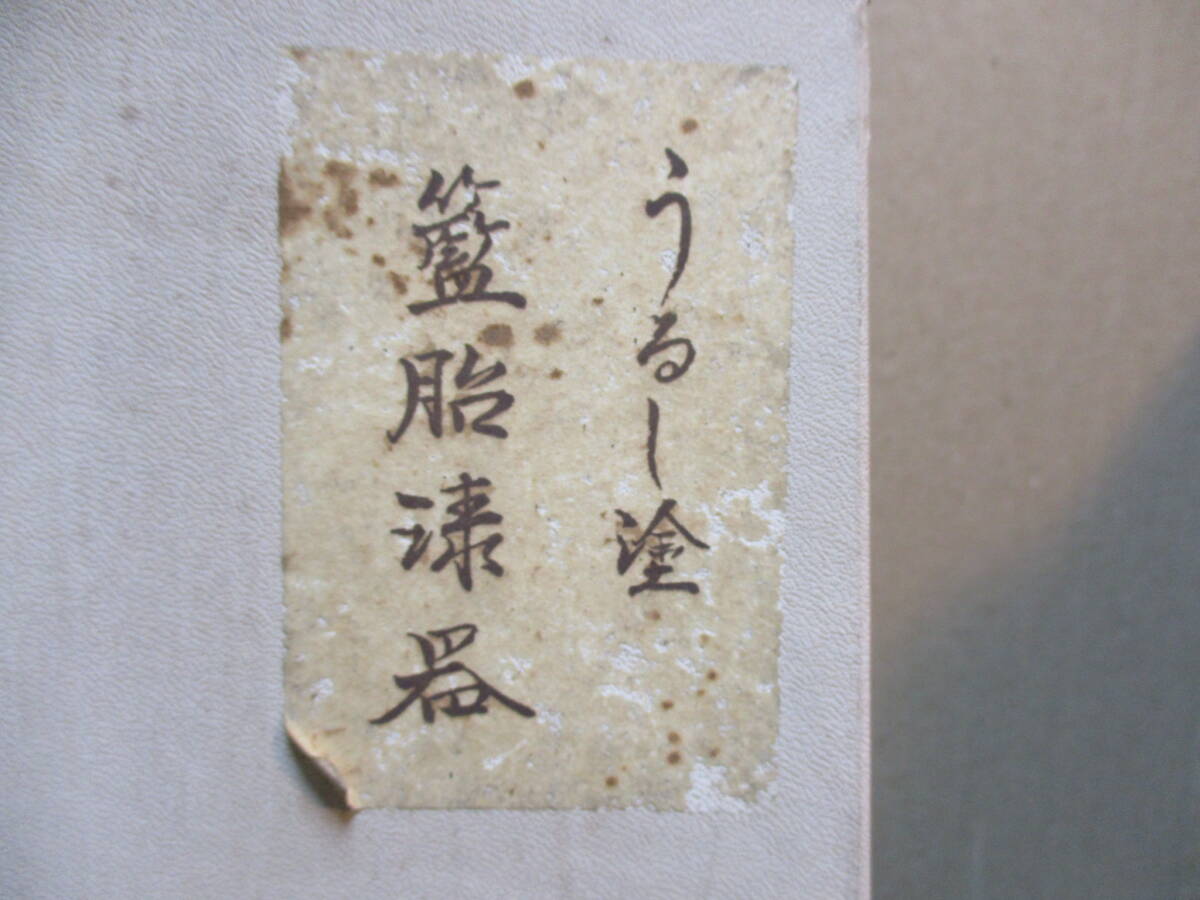 うるし塗
籃胎漆器